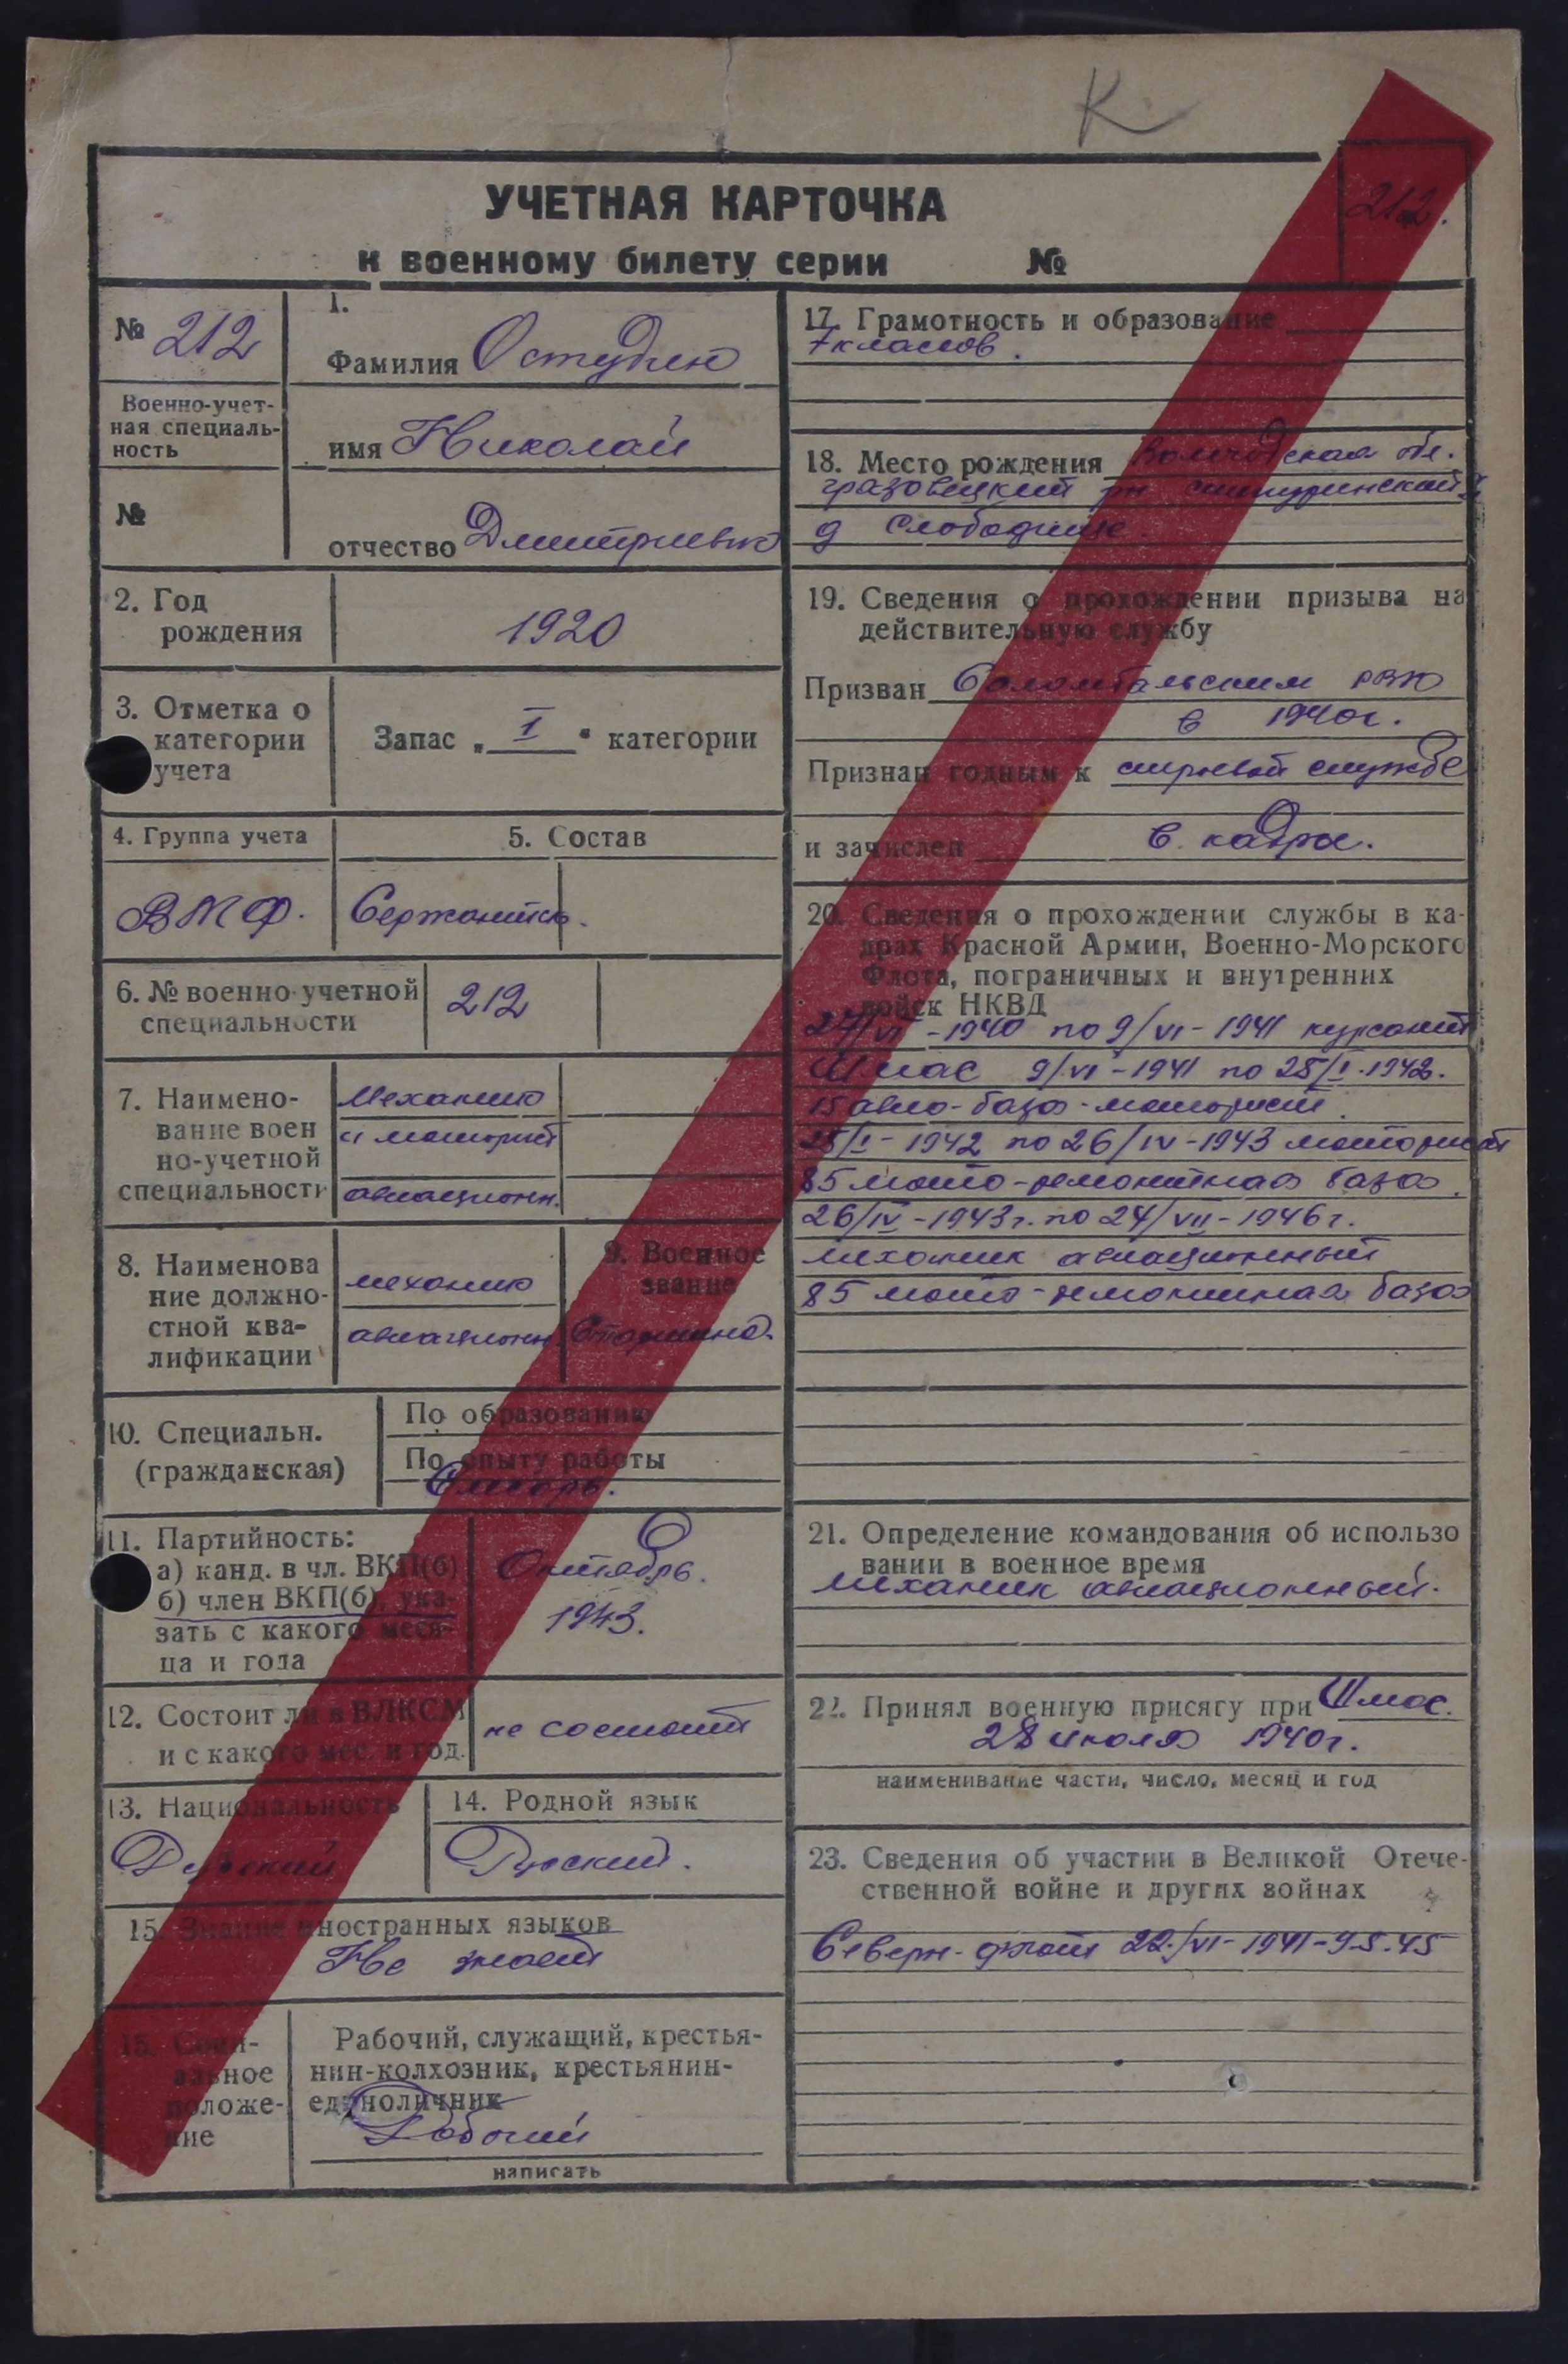 К
УЧЕТНАЯ КАРТОЧКА
212.
к военному билету серии №
№ 212
Военно-учет-
ная специаль-
ность
№
1.
Фамилия Остудин
имя Николай
отчество Дмитриевич
2. Год
рождения
1920
3. Отметка о
категории
учета
Запас „ I “ категории
4. Группа учета
ВМФ.
5. Состав
Сержантск.
6. № военно-учетной
специальности
212
7. Наимено-
вание воен
но-учетной
специальности
Механик
и моторист
авиационн.
8. Наименова
ние должно-
стной ква-
лификации
механик
авиационн.
9. Военное
звание
Старшина.
10. Специальн.
(гражданская)
По образованию
По опыту работы
Слесарь.
11. Партийность:
а) канд. в чл. ВКП(б)
б) член ВКП(б), ука-
зать с какого меся-
ца и года
Октябрь.
1943.
12. Состоит ли в ВЛКСМ
и с какого мес. и год.
не состоит
13. Национальность
Русский
14. Родной язык
Русский.
15. Знание иностранных языков
Не знает
15. Соци-
альное
положе-
ние
Рабочий, служащий, крестья-
нин-колхозник, крестьянин-
единоличник
Рабочий
написать
17. Грамотность и образование
7 классов.
18. Место рождения Вологодская обл.
грязовецкий рн
д Слободище.
19. Сведения о прохождении призыва на
действительную службу
Призван Соломбальским РВК
в 1940г.
Признан годным к строевой службе
и зачислен в кадры.
20. Сведения о прохождении службы в ка-
драх Красной Армии, Военно-Морского
Флота, пограничных и внутренних
войск НКВД
24/VI -1940 по 9/VI - 1941 курсант
Шмас 9/VI - 1941 по 25/I. 1942.
15 авио-база - моторист.
25/I - 1942 по 26/IV - 1943 моторист
85 мото-ремонтная база.
26/IV - 1943г. по 24/VII - 1946г.
механик авиационный
85 мото-ремонтная база
21. Определение командования об использо
вании в военное время
механик авиационный.
22. Принял военную присягу при Шмас.
28 июля 1940г.
наименивание части, число, месяц и год
23. Сведения об участии в Великой Отече-
ственной войне и других войнах
Северн. флот 22./VI - 1941 - 9.5.45